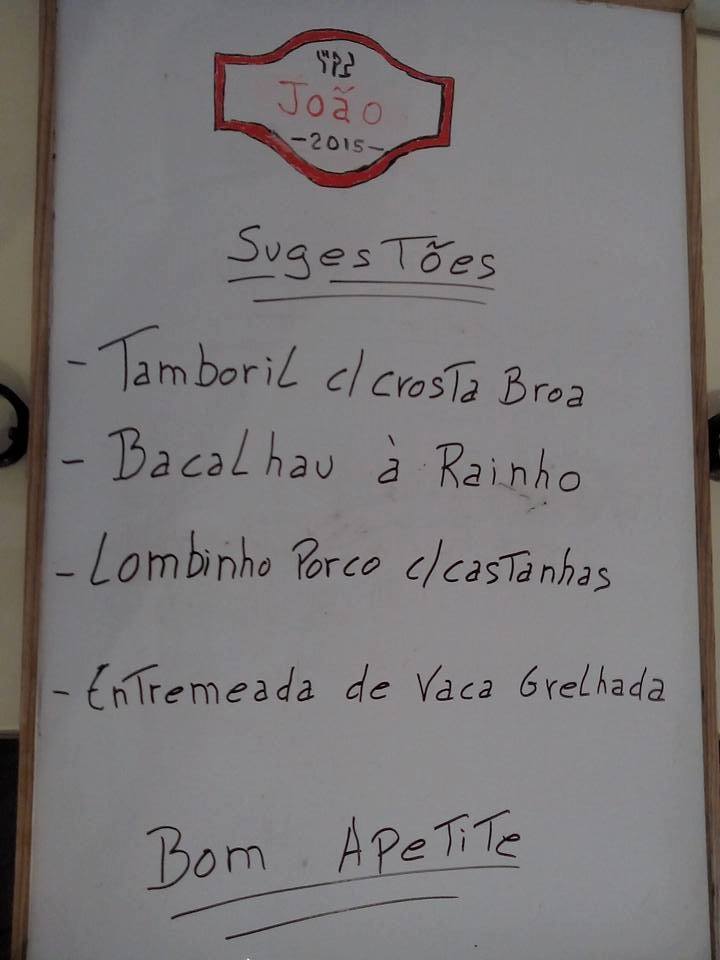 João
-2015-
Sugestões
- Tamboril c/ crosta Broa
- Bacalhau à Rainho
- Lombinho Porco c/ castanhas
- Entremeada de Vaca Grelhada
Bom Apetite